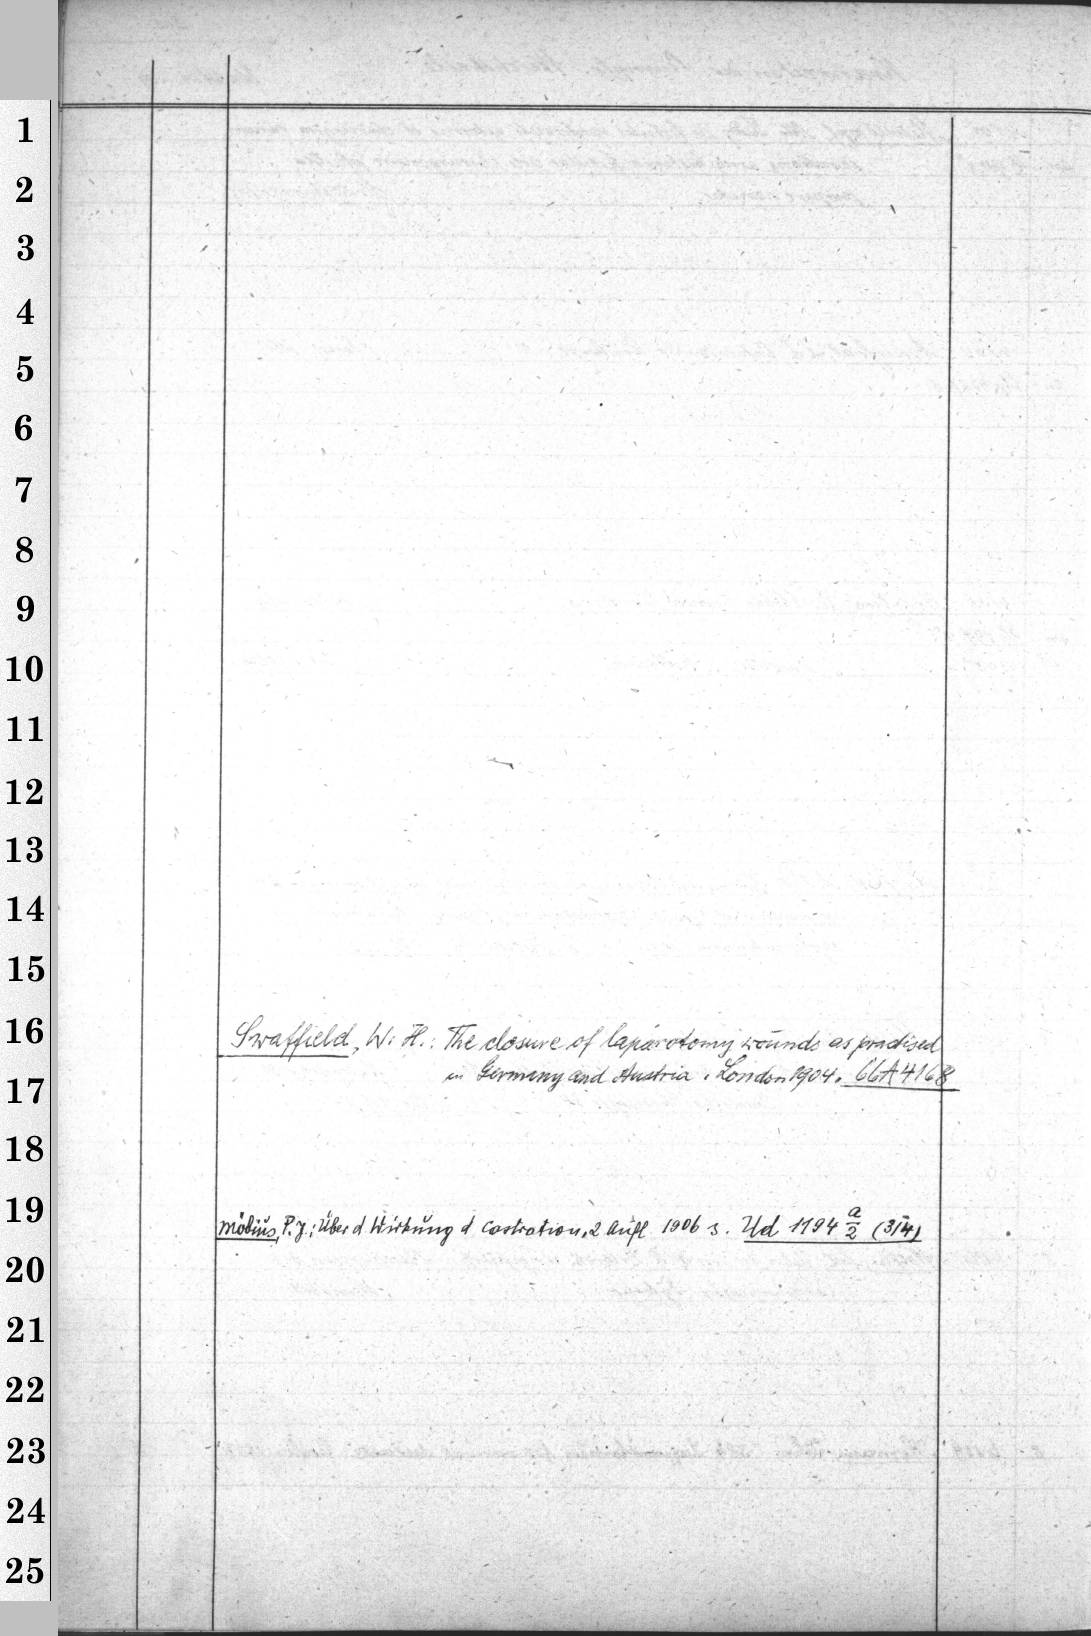 1
2
3
4
5
6
7
8
9
10
11
12
13
14
15
16
17
18
19
20
21
22
23
24
25
Swaffield, W. H.: The closure of laparotomy wounds as practised
in Germany and Austria. London 1904. 66A4168
Möbius, P. J.: Über d Wirkung d Castration, 2 Aufl 1906 s. Ud 1194 a/2 (3/4)